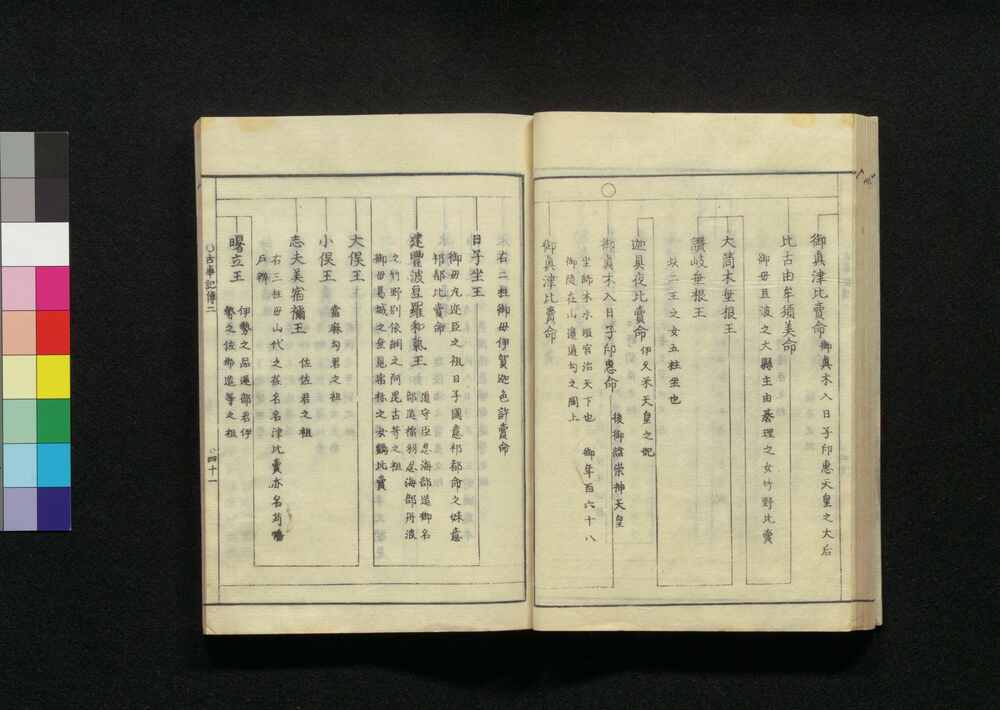 御真津比賣命
御真木入日子印恵天皇之大后
比古由牟須美命
御母旦波之大縣主由碁理之女竹野比賣
大筒木垂根王
讃岐垂根王
此二王之女五柱坐也
迦具夜比賣命
伊久米天皇之妃
御真木入日子印恵命
後御諡崇神天皇
坐師木水垣宮治天下也 御年百六十八
御陵在山邊道勾之岡上
御真津比賣命
右二柱御母伊賀迦色許賣命
日子坐王
御母丸迩臣之祖日子國意祁都命之妹意
祁都比賣命
建豊波豆羅和氣王
道守臣忍海部造御名
部造稲羽忍海部丹波
之竹野別依網之阿毘古等之祖
御母葛城之垂見宿祢之女鸇比賣
大俣王
小俣王
當麻勾君之祖
志夫美宿禰王
佐佐君之祖
右三柱母山代之荏名津比賣亦名苅幡
戸辨
曙立王
伊勢之品遅部君伊
勢之佐那造等之祖
古事記傳二
四十一